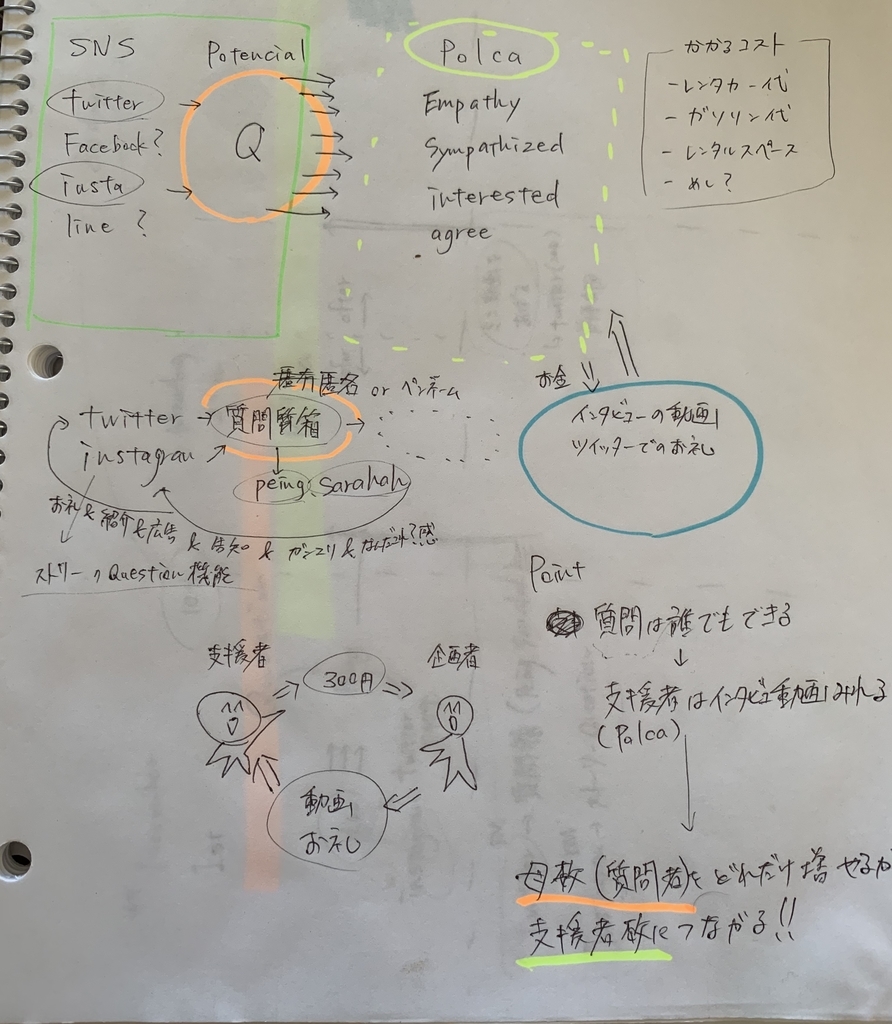 SNS
twitter
Facebook?
insta
line ?
Potencial
Q
Polca
Empathy
Sympathized
interested
agree
かかるコスト
- レンタカー代
- ガソリン代
- レンタルスペース
- めし?
匿名 or ペンネーム
twitter
instagram
質問箱
peing、Sarahah
お礼 & 紹介 & 広告 & 告知 & ガンエリ & なんだこれ?感
ストーリーQuestion機能
お金
インタビューの動画
ツイッターでのお礼
支援者
300円
企画者
動画
お礼
Point
質問は誰でもできる
支援者はインタビュー動画みれる
(Polca)
母数(質問者)をどれだけ増やせるか
支援者数につながる!!